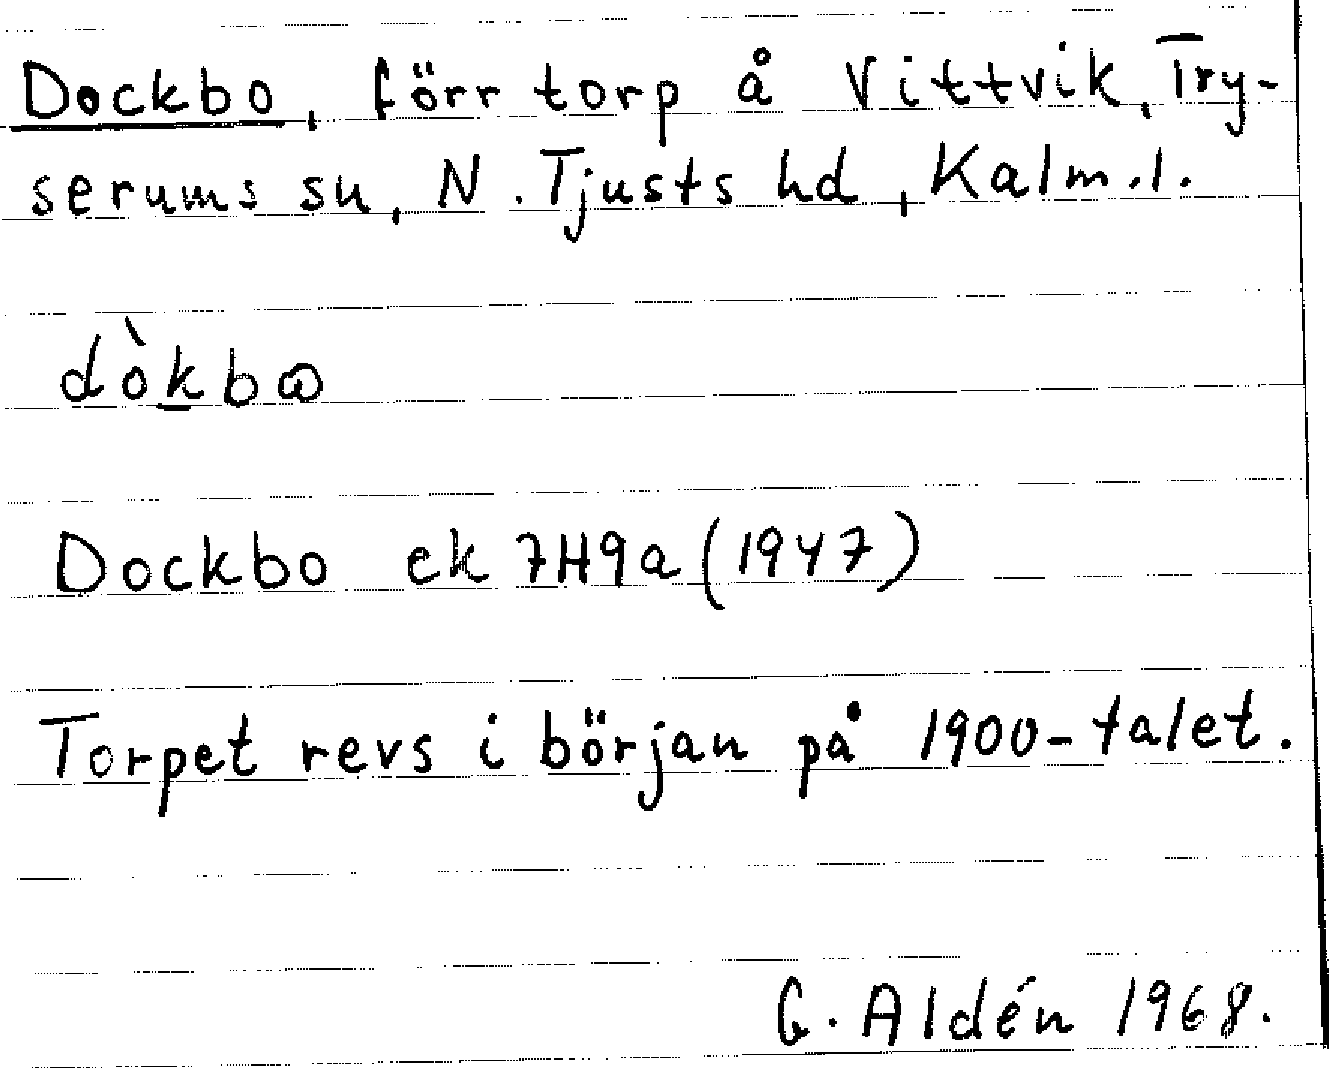 Dockbo, förr torp å Vittvik, Try-
serums sn, N. Tjusts hd, Kalm.l.
dòkbɷ
Dockbo ek 7H9a (1947)
Torpet revs i början på 1900-talet.
G. Aldén 1968.